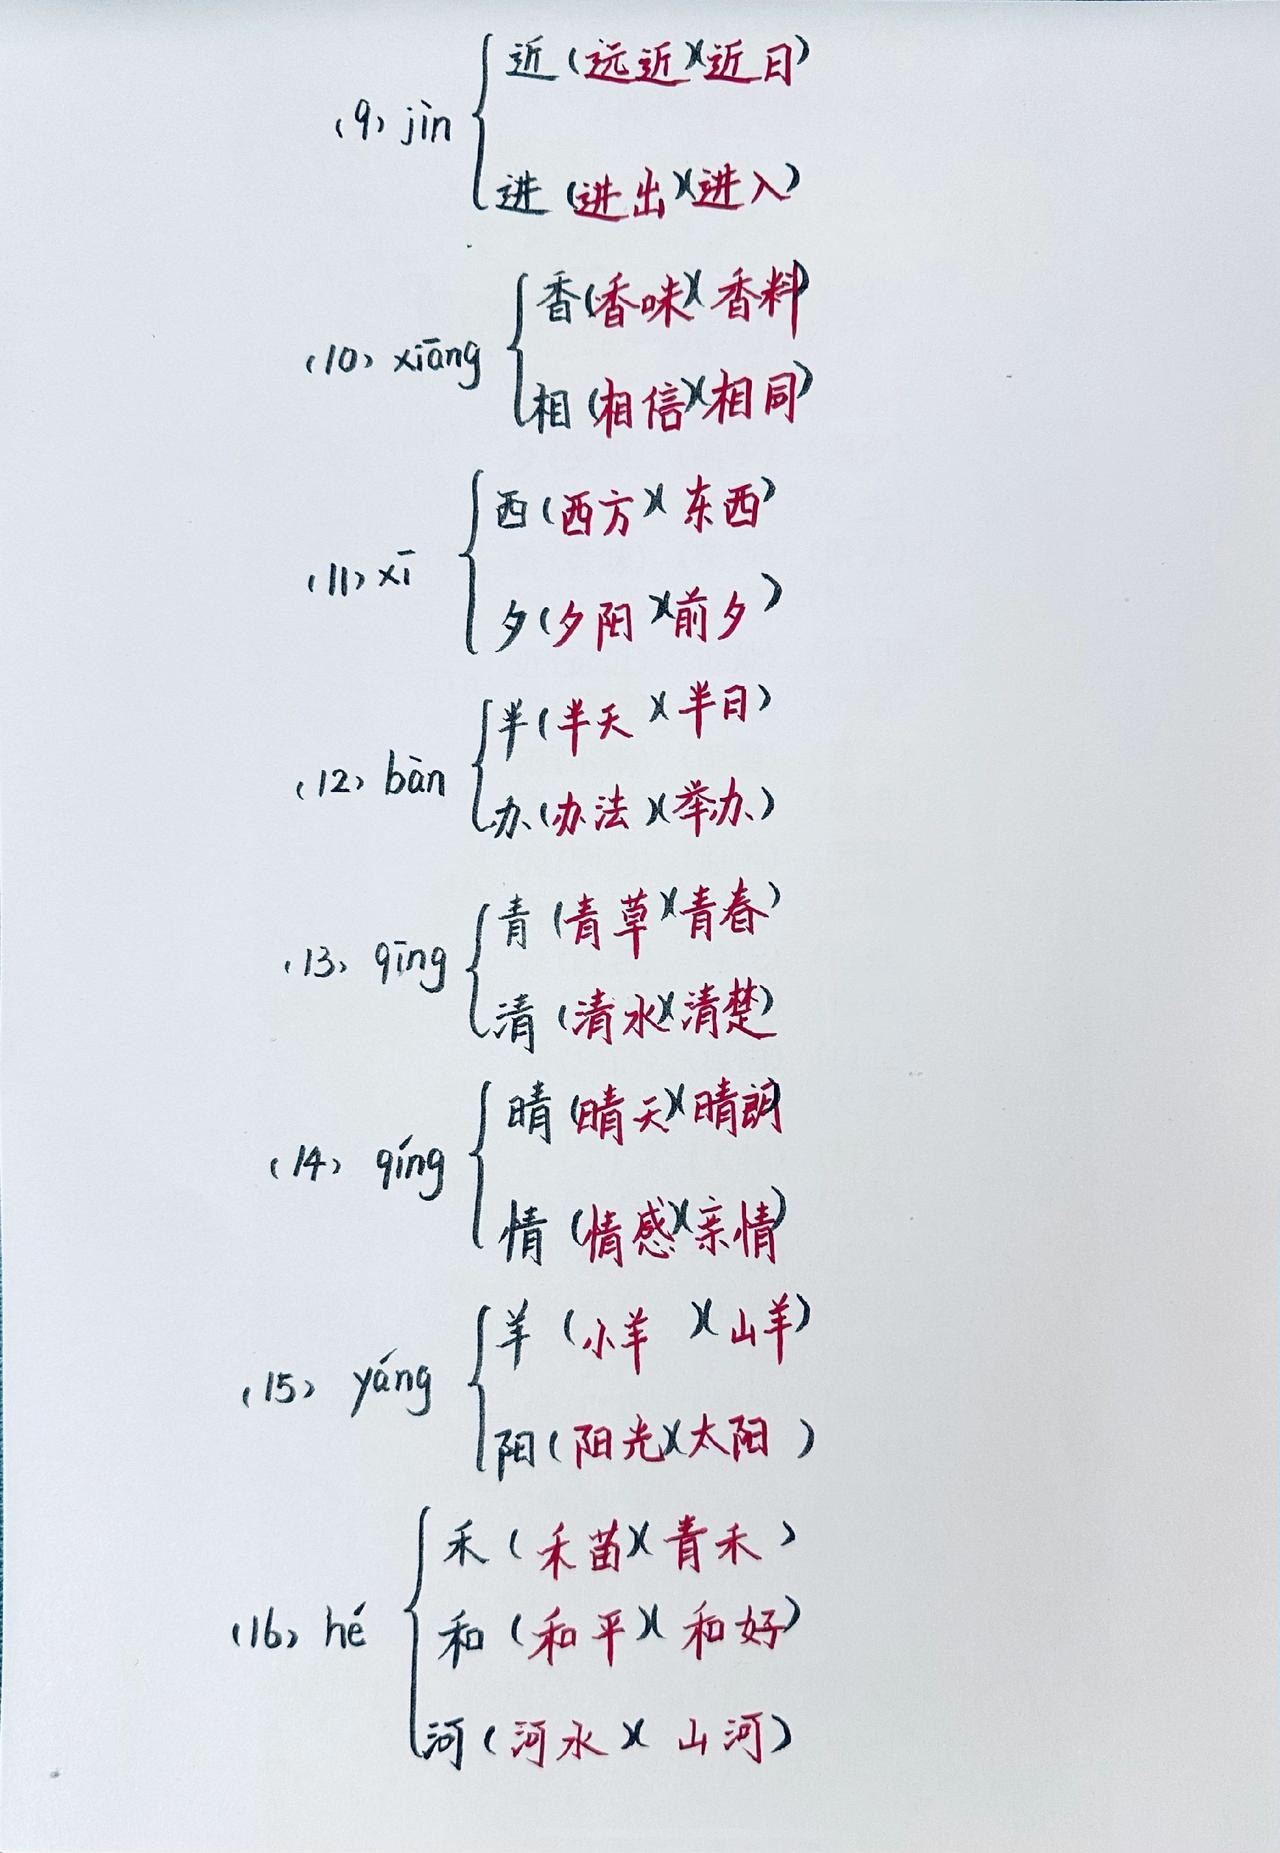 近(远近)(近日)
(9) jìn
进(进出)(进入)
香(香味)(香料)
(10) xiāng
相(相信)(相同)
西(西方)(东西)
(11) xī
夕(夕阳)(前夕)
半(半天)(半日)
(12) bàn
办(办法)(举办)
青(青草)(青春)
(13) qīng
清(清水)(清楚)
晴(晴天)(晴朗)
(14) qíng
情(情感)(亲情)
羊(小羊)(山羊)
(15) yáng
阳(阳光)(太阳)
禾(禾苗)(青禾)
(16) hé
和(和平)(和好)
河(河水)(山河)